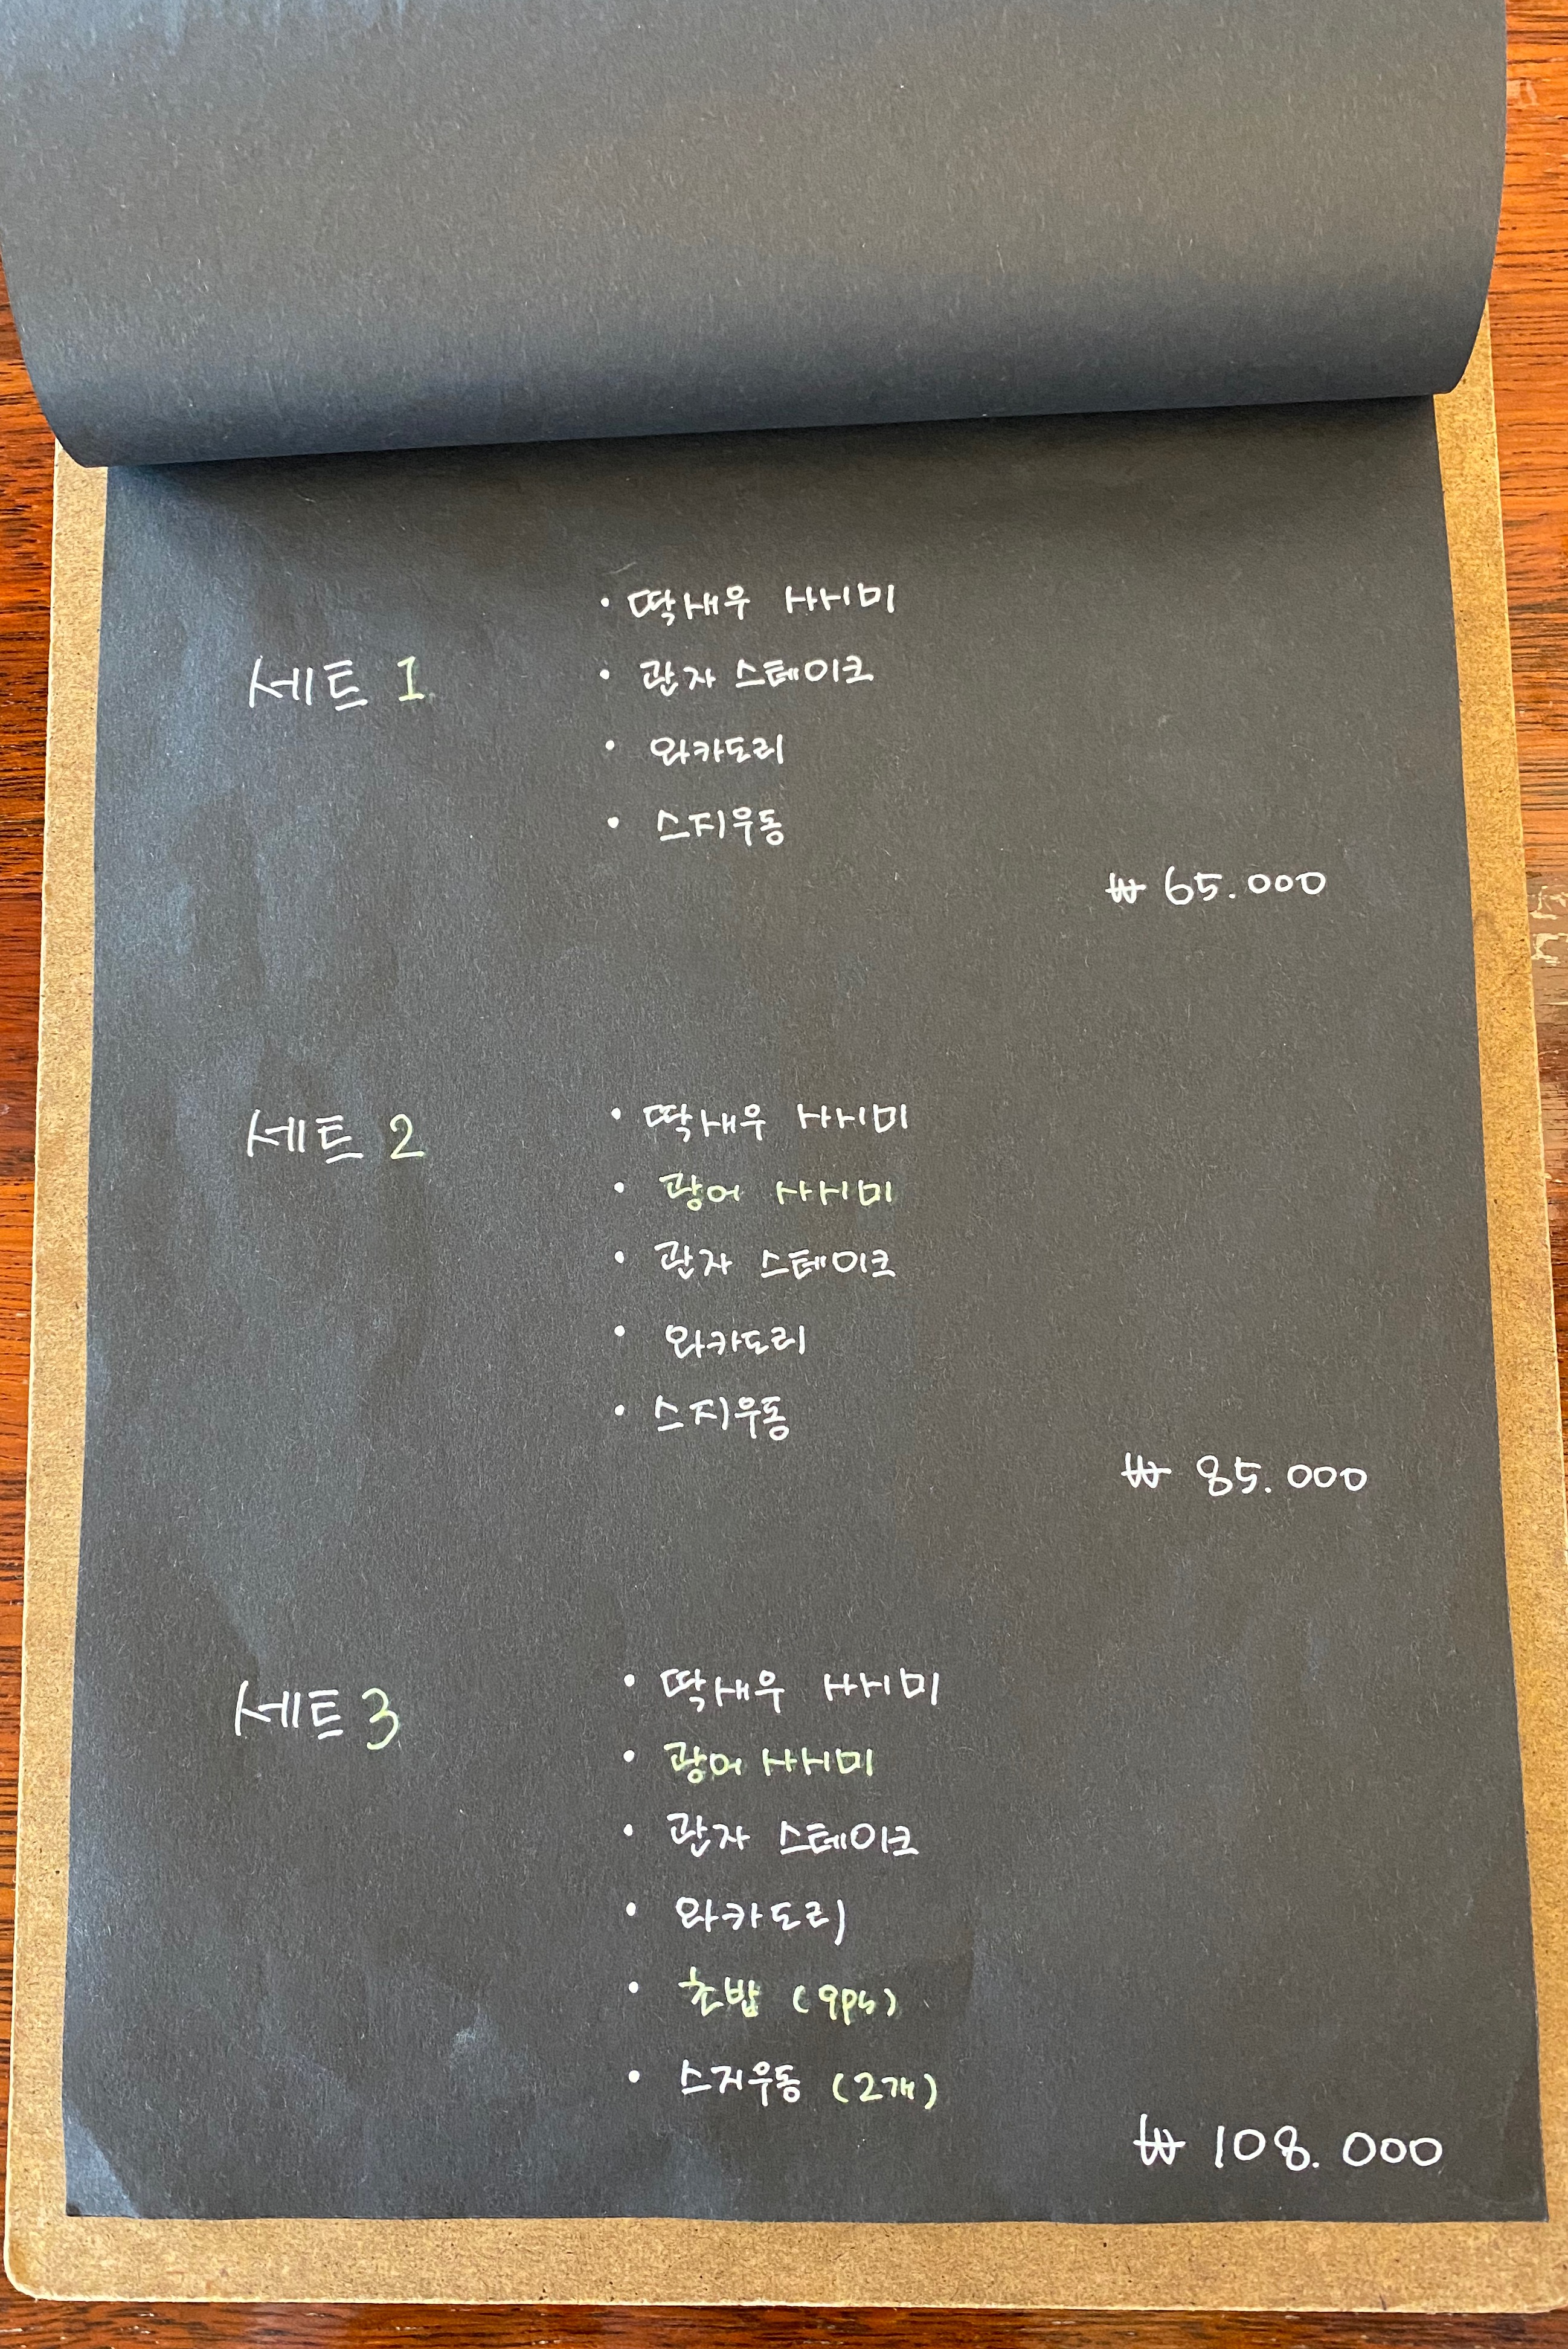 세트 1
· 딱새우 사시미
· 관자 스테이크
· 와카도리
· 스지우동
₩ 65.000
세트 2
· 딱새우 사시미
· 광어 사시미
· 관자 스테이크
· 와카도리
· 스지우동
₩ 85.000
세트 3
· 딱새우 사시미
· 광어 사시미
· 관자 스테이크
· 와카도리
· 초밥 (9ps)
· 스지우동 (2개)
₩ 108.000